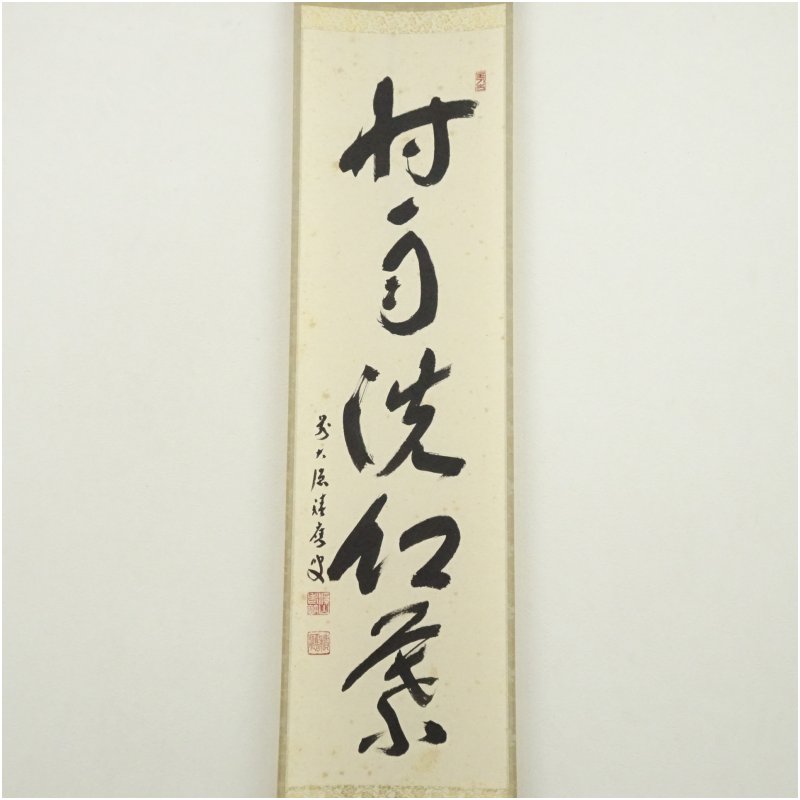 時雨洗紅葉
前大徳靖應叟